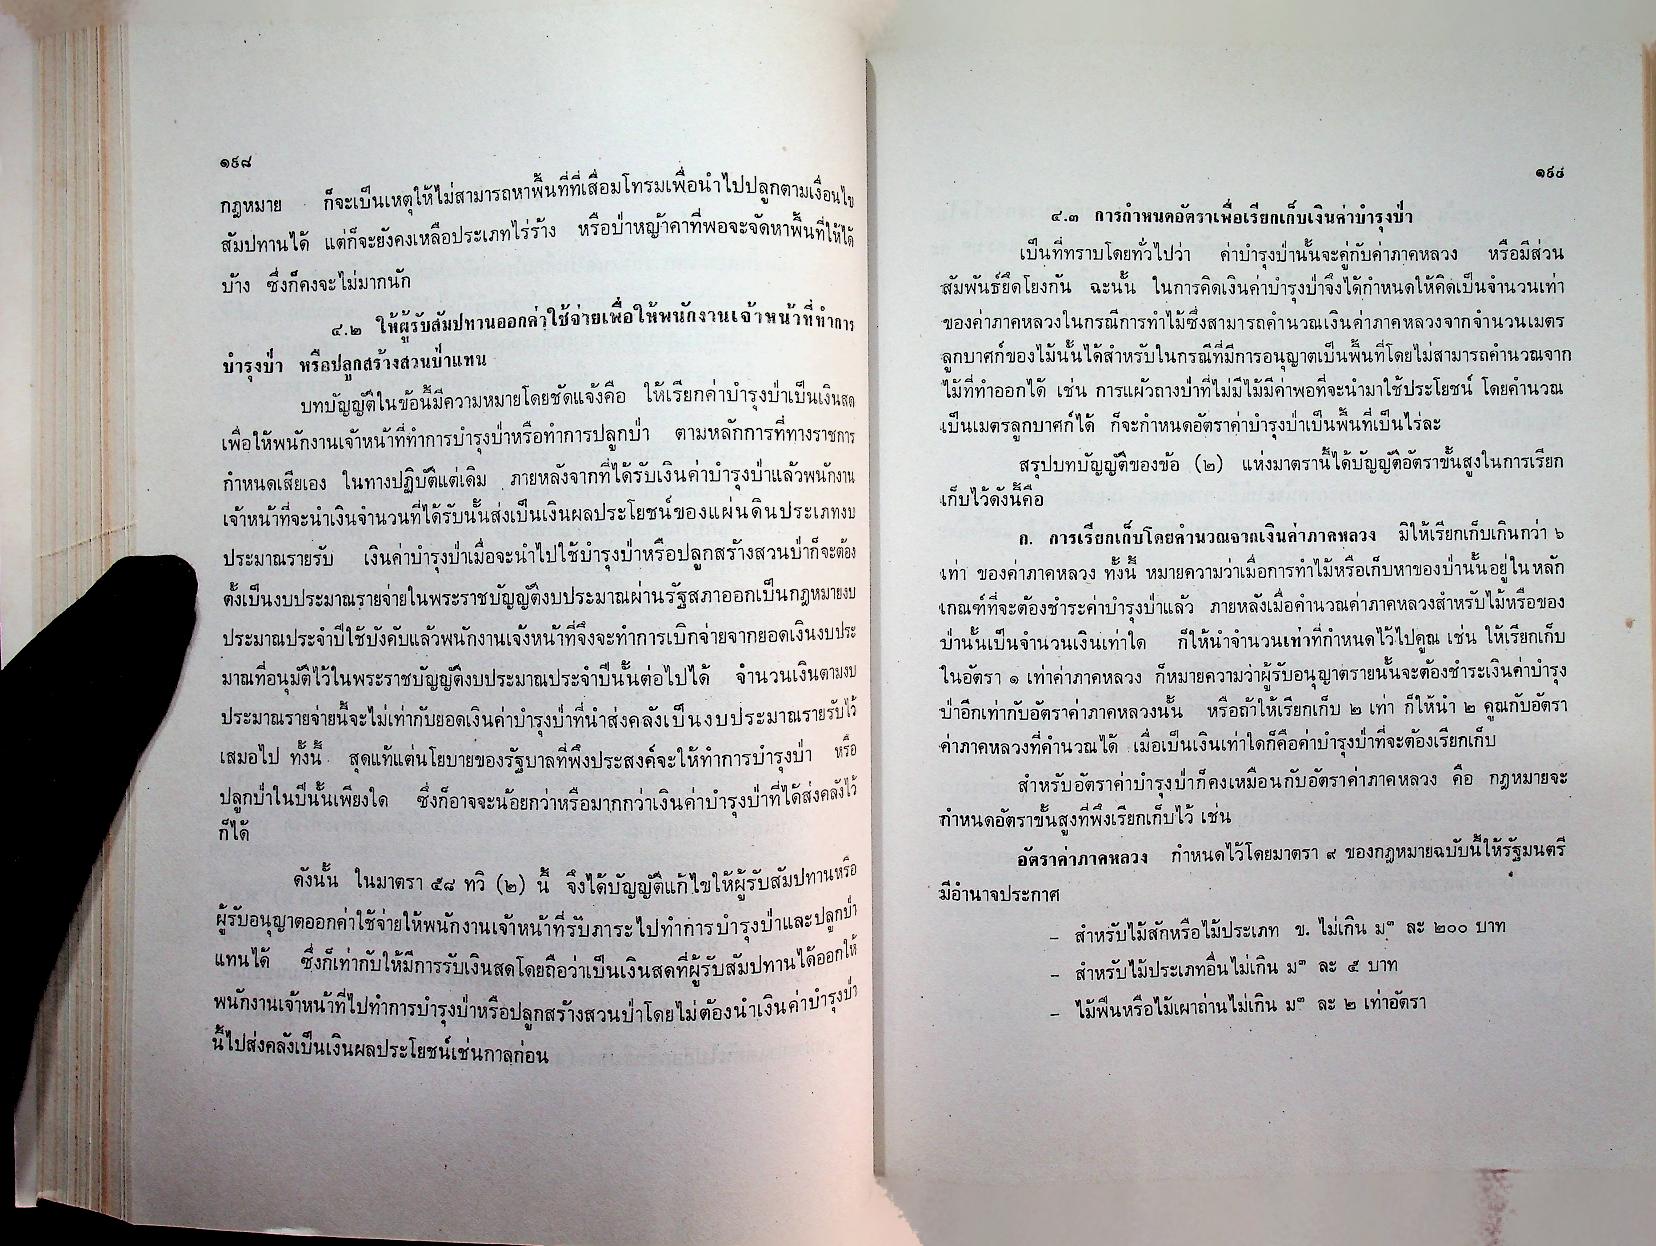 ๑๙๘
กฎหมาย ก็จะเป็นเหตุให้ไม่สามารถหาพื้นที่ที่เสื่อมโทรมเพื่อนำไปปลูกตามเงื่อนไข
สัมปทานได้ แต่ก็จะยังคงเหลือประเภทไร่ร้าง หรือป่าหญ้าคาที่พอจะจัดหาพื้นที่ให้ได้
บ้าง ซึ่งก็คงจะไม่มากนัก
๔.๒ ให้ผู้รับสัมปทานออกค่าใช้จ่ายเพื่อให้พนักงานเจ้าหน้าที่ทำการ
บำรุงป่า หรือปลูกสร้างสวนป่าแทน
บทบัญญัติในข้อนี้มีความหมายโดยชัดแจ้งคือ ให้เรียกค่าบำรุงป่าเป็นเงินสด
เพื่อให้พนักงานเจ้าหน้าที่ทำการบำรุงป่าหรือทำการปลูกป่า ตามหลักการที่ทางราชการ
กำหนดเสียเอง ในทางปฏิบัติแต่เดิม ภายหลังจากที่ได้รับเงินค่าบำรุงป่าแล้วพนักงาน
เจ้าหน้าที่จะนำเงินจำนวนที่ได้รับนั้นส่งเป็นเงินผลประโยชน์ของแผ่นดินประเภทงบ
ประมาณรายรับ เงินค่าบำรุงป่าเมื่อจะนำไปใช้บำรุงป่าหรือปลูกสร้างสวนป่าก็จะต้อง
ตั้งเป็นงบประมาณรายจ่ายในพระราชบัญญัติงบประมาณผ่านรัฐสภาออกเป็นกฎหมายงบ
ประมาณประจำปีใช้บังคับแล้วพนักงานเจ้งหน้าที่จึงจะทำการเบิกจ่ายจากยอดเงินงบประ
มาณที่อนุมัติไว้ในพระราชบัญญัติงบประมาณประจำปีนั้นต่อไปได้ จำนวนเงินตามงบ
ประมาณรายจ่ายนี้จะไม่เท่ากับยอดเงินค่าบำรุงป่าที่นำส่งคลังเป็นงบประมาณรายรับไว้
เสมอไป ทั้งนี้ สุดแท้แต่นโยบายของรัฐบาลที่พึงประสงค์จะให้ทำการบำรุงป่า หรือ
ปลูกป่าในปีนั้นเพียงใด ซึ่งก็อาจจะน้อยกว่าหรือมากกว่าเงินค่าบำรุงป่าที่ได้ส่งคลังไว้
ก็ได้
ดังนั้น ในมาตรา ๕๘ ทวิ (๒) นี้ จึงได้บัญญัติแก้ไขให้ผู้รับสัมปทานหรือ
ผู้รับอนุญาตออกค่าใช้จ่ายให้พนักงานเจ้าหน้าที่รับภาระไปทำการบำรุงป่าและปลูกป่า
แทนได้ ซึ่งก็เท่ากับให้มีการรับเงินสดโดยถือว่าเป็นเงินสดที่ผู้รับสัมปทานได้ออกให้
พนักงานเจ้าหน้าที่ไปทำการบำรุงป่าหรือปลูกสร้างสวนป่าโดยไม่ต้องนำเงินค่าบำรุงป่า
นี้ไปส่งคลังเป็นเงินผลประโยชน์เช่นกาลก่อน
๑๙๙
๔.๓ การกำหนดอัตราเพื่อเรียกเก็บเงินค่าบำรุงป่า
เป็นที่ทราบโดยทั่วไปว่า ค่าบำรุงป่านั้นจะคู่กับค่าภาคหลวง หรือมีส่วน
สัมพันธ์ยึดโยงกัน ฉะนั้น ในการคิดเงินค่าบำรุงป่าจึงได้กำหนดให้คิดเป็นจำนวนเท่า
ของค่าภาคหลวงในกรณีการทำไม้ซึ่งสามารถคำนวณเงินค่าภาคหลวงจากจำนวนเมตร
ลูกบาศก์ของไม้นั้นได้สำหรับในกรณีที่มีการอนุญาตเป็นพื้นที่โดยไม่สามารถคำนวณจาก
ไม้ที่ทำออกได้ เช่น การแผ้วถางป่าที่ไม่มีไม้มีค่าพอที่จะนำมาใช้ประโยชน์ โดยคำนวณ
เป็นเมตรลูกบาศก์ได้ ก็จะกำหนดอัตราค่าบำรุงป่าเป็นพื้นที่เป็นไร่ละ
สรุปบทบัญญัติของข้อ (๒) แห่งมาตรานี้ได้บัญญัติอัตราขั้นสูงในการเรียก
เก็บไว้ดังนี้คือ
ก. การเรียกเก็บโดยคำนวณจากเงินค่าภาคหลวง มิให้เรียกเก็บเกินกว่า ๖
เท่า ของค่าภาคหลวง ทั้งนี้ หมายความว่าเมื่อการทำไม้หรือเก็บหาของป่านั้นอยู่ในหลัก
เกณฑ์ที่จะต้องชำระค่าบำรุงป่าแล้ว ภายหลังเมื่อคำนวณค่าภาคหลวงสำหรับไม้หรือของ
ป่านั้นเป็นจำนวนเงินเท่าใด ก็ให้นำจำนวนเท่าที่กำหนดไว้ไปคูณ เช่น ให้เรียกเก็บ
ในอัตรา ๑ เท่าค่าภาคหลวง ก็หมายความว่าผู้รับอนุญาตรายนั้นจะต้องชำระเงินค่าบำรุง
ป่าอีกเท่ากับอัตราค่าภาคหลวงนั้น หรือถ้าให้เรียกเก็บ ๒ เท่า ก็ให้นำ ๒ คูณกับอัตรา
ค่าภาคหลวงที่คำนวณได้ เมื่อเป็นเงินเท่าใดก็คือค่าบำรุงป่าที่จะต้องเรียกเก็บ
สำหรับอัตราค่าบำรุงป่าก็คงเหมือนกับอัตราค่าภาคหลวง คือ กฎหมายจะ
กำหนดอัตราขั้นสูงที่พึงเรียกเก็บไว้ เช่น
อัตราค่าภาคหลวง กำหนดไว้โดยมาตรา ๙ ของกฎหมายฉบับนี้ให้รัฐมนตรี
มีอำนาจประกาศ
– สำหรับไม้สักหรือไม้ประเภท ข. ไม่เกิน ม³ ละ ๒๐๐ บาท
– สำหรับไม้ประเภทอื่นไม่เกิน ม³ ละ ๕ บาท
– ไม้ฟืนหรือไม้เผาถ่านไม่เกิน ม³ ละ ๒ เท่าอัตรา